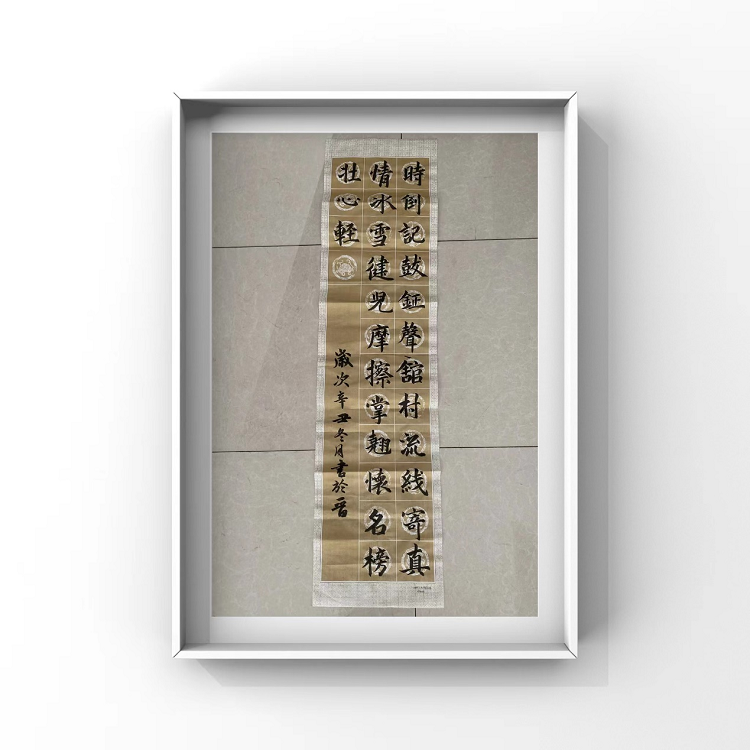 時倒記鼓鉦聲舘村流线寄真
情冰雪健児摩擦掌翘懷名榜
壮心輕
歲次辛丑冬月書於晋